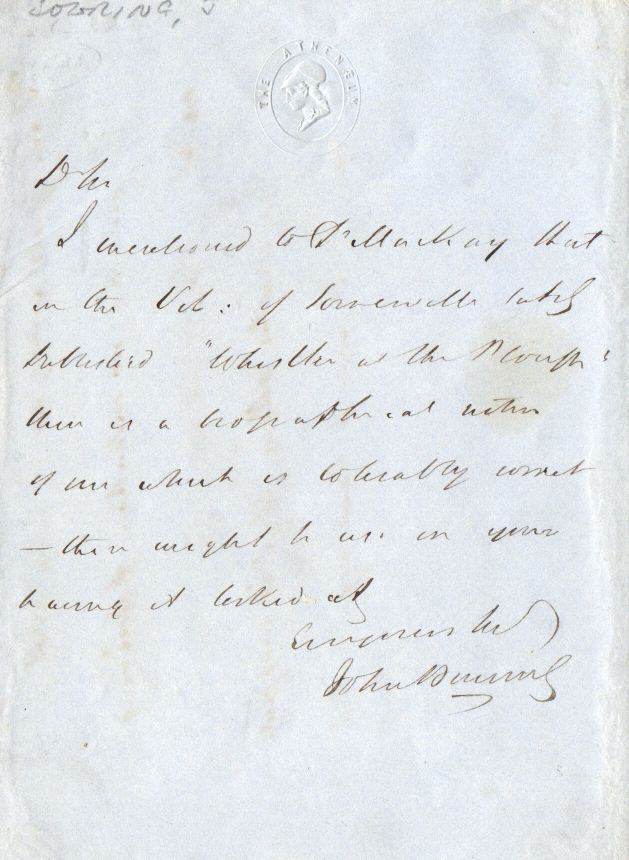 BOWRING, J
THE ATHENÆUM
Dr Sir
I mentioned to Dr MacKay that
in the Vol: of Somerville lately
published "Whistler at the Plough"
there is a biographical notice
of me which is tolerably correct
— there might be use in your
having it looked at
John Bowring